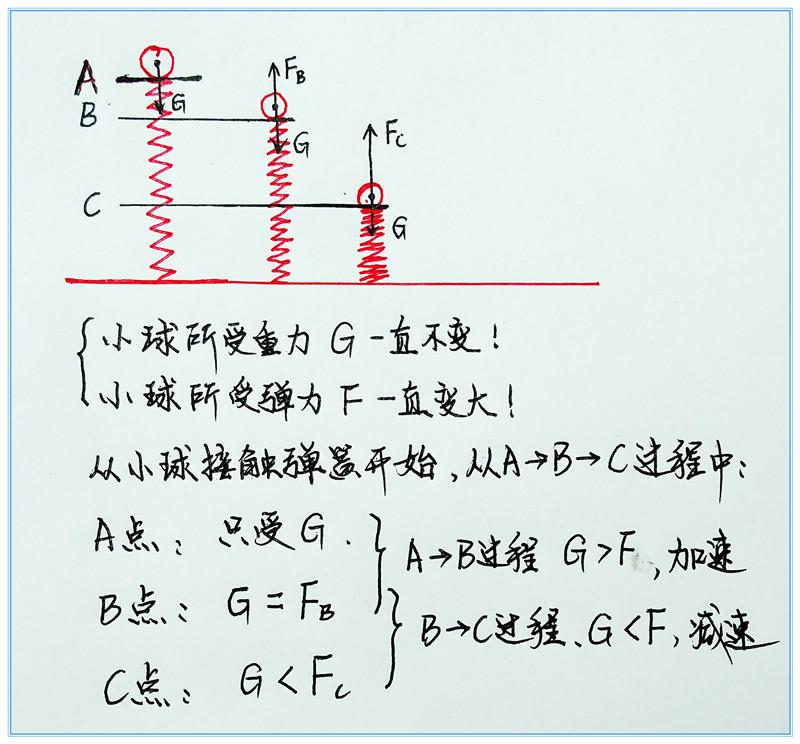 A
G
B
F_B
G
C
F_C
G
小球所受重力 G 一直不变!
小球所受弹力 F 一直变大!
从小球接触弹簧开始,从A→B→C过程中:
A点: 只受G.
B点: G=F_B
C点: G<F_C
A→B过程 G>F,加速
B→C过程、G<F,减速